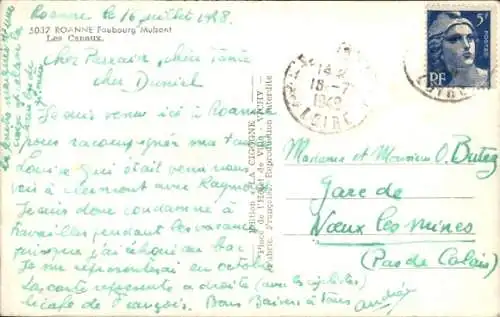 Roanne le 16 juillet 1948.
5037 ROANNE Faubourg Mulsant
Les Canaux.
Cher Parrain, chère tante
cher Daniel
Je suis venue ici à Roanne
pour raccompagner ma tante
Louise qui était venu nous
voir à Clermont avec
Je suis donc condamné à
travailler pendant les vacances
puisque j'ai échoué au bac
Je me représenterai en octobre
La carte représente à droite (avec les cyclistes)
le café de François. Bons Baisers à tous
Andrée
Edition LA CIGOGNE - VICHY -
Place de l'Hôtel de Ville
Fabric. Française - Reproduction Interdite
5F
POSTES
RF
18-7
LOIRE
LOIRE
Madame et Monsieur O.
Gare de
Nœux les mines
(Pas de Calais)